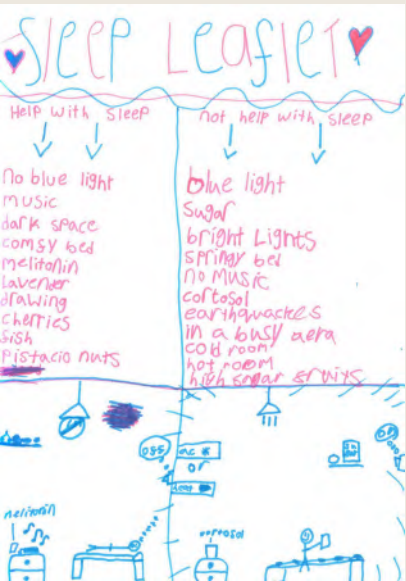 Sleep Leaflet
Help with Sleep
no blue light
music
dark space
comsy bed
melitonin
lavender
drawing
cherries
fish
Pistacio nuts
not help with sleep
blue light
sugar
bright Lights
springy bed
no music
cortosol
earthqwackes
in a busy aera
cold room
hot room
high sugar fruits
off
ac
or
heat
melitonin
cortosol